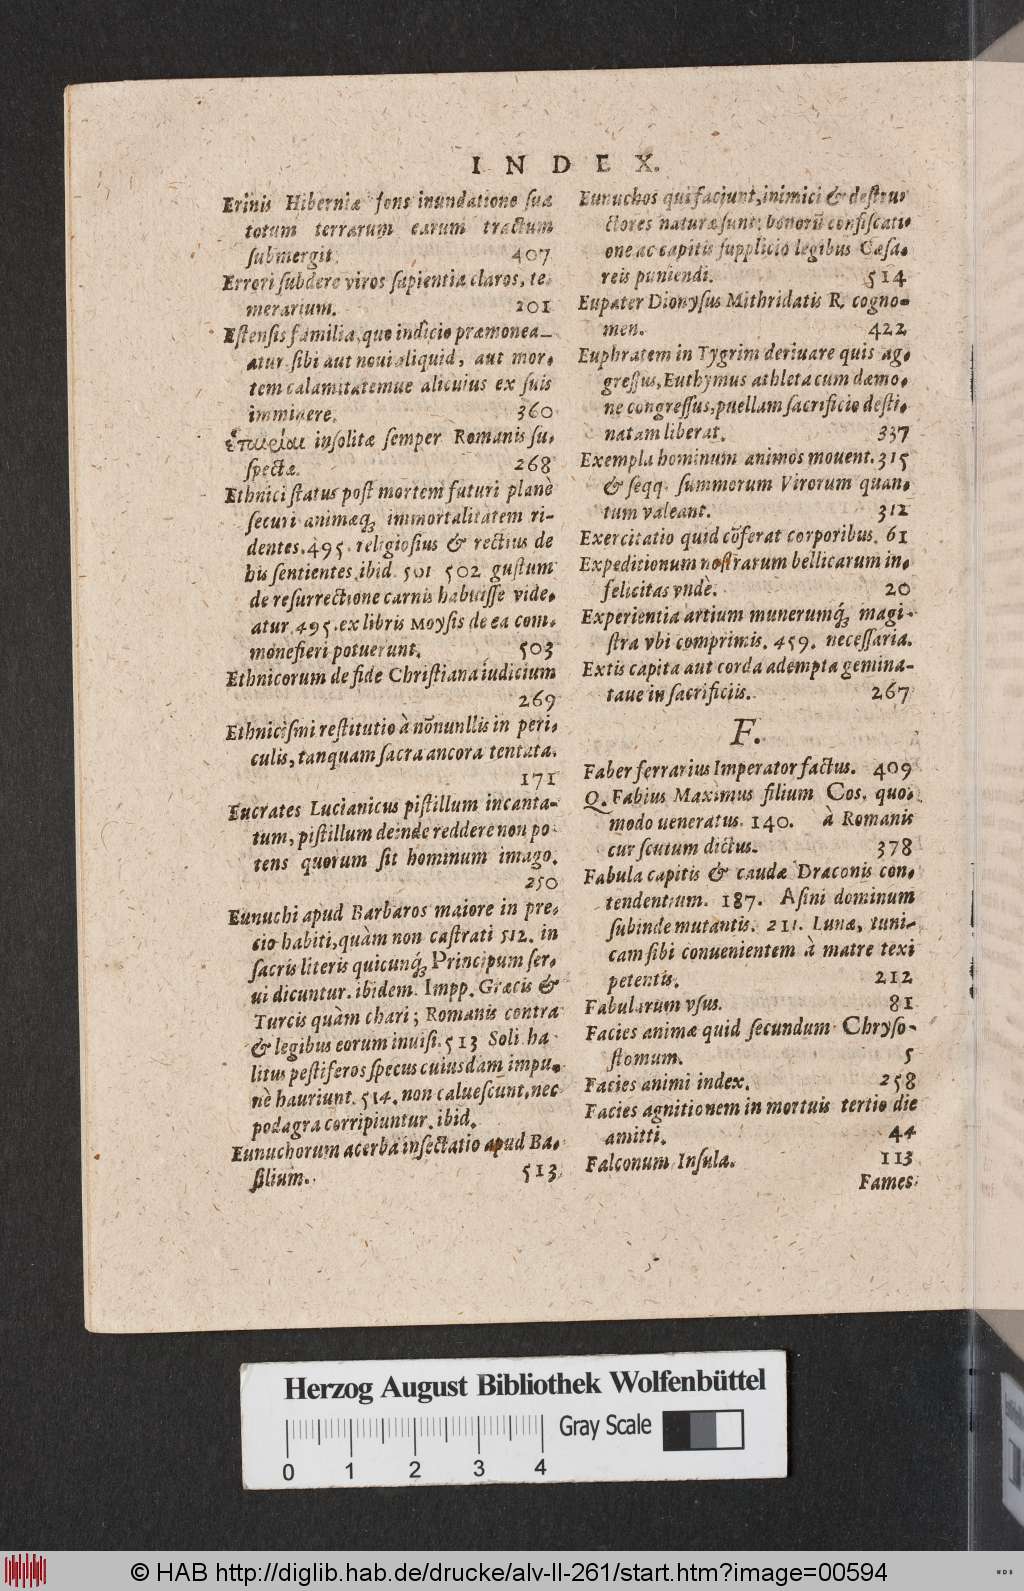 INDEX.
Erinis Hiberniæ fons inundatione ſua
totum terrarum earum tractum
ſubmergit. 407
Errori ſubdere viros ſapientia claros, te
merarium. 201
Eſtenſis familia, quo indicio præmonea-
atur ſibi aut noui aliquid, aut mor-
tem calamitatemue alicuius ex ſuis
imminere. 360
ἑταιρίαι inſolitæ ſemper Romanis ſu-
ſpectæ. 268
Ethnici ſtatus poſt mortem futuri planè
ſecuri animæq; immortalitatem ri-
dentes. 495. religioſius & rectius de
his ſentientes ibid. 501 502 guſtum
de reſurrectione carnis habuiſſe vide-
atur. 495. ex libris Moyſis de ea com-
monefieri potuerunt. 503
Ethnicorum de fide Chriſtiana iudicium
269
Ethnicìſmi reſtitutio à nōnunllis in peri-
culis, tanquam ſacra ancora tentata.
171
Eucrates Lucianicus piſtillum incanta-
tum, piſtillum deinde reddere non po-
tens quorum ſit hominum imago.
250
Eunuchi apud Barbaros maiore in pre-
cio habiti, quàm non caſtrati 512. in
ſacris literis quicunq; Principum ſer-
ui dicuntur. ibidem. Impp. Græcis &
Turcis quàm chari; Romanis contra
& legibus eorum inuiſi. 513 Soli ha
litus peſtiferos ſpecus cuiusdam impu-
nè hauriunt. 514. non calueſcunt, nec
podagra corripiuntur. ibid.
Eunuchorum acerba inſectatio apud Ba-
ſilium. 513
Eunuchos qui faciunt, inimici & deſtru-
ctores naturæ ſunt; bonorū confiſcati-
one ac capitis ſupplicio legibus Cæſa-
reis puniendi. 514
Eupater Dionyſus Mithridatis R. cogno-
men. 422
Euphratem in Tygrim deriuare quis ag-
greſſus, Euthymus athleta cum dæmo-
ne congreſſus, puellam ſacrificio deſti-
natam liberat. 337
Exempla hominum animos mouent. 315
& ſeqq. ſummorum Virorum quan-
tum valeant. 312
Exercitatio quid cōferat corporibus. 61
Expeditionum noſtrarum bellicarum in-
felicitas vndè. 20
Experientia artium munerumq́; magi-
ſtra vbi comprimis. 459. neceſſaria.
Extis capita aut corda adempta gemina-
taue in ſacrificiis. 267
F.
Faber ferrarius Imperator factus. 409
Q. Fabius Maximus filium Cos. quo-
modo ueneratus. 140. à Romanis
cur ſcutum dictus. 378
Fabula capitis & caudæ Draconis con-
tendentium. 187. Aſini dominum
ſubinde mutantis. 211. Lunæ, tuni-
cam ſibi conuenientem à matre texi
petentis. 212
Fabularum vſus. 81
Facies animæ quid ſecundum Chryſo-
ſtomum. 5
Facies animi index. 258
Facies agnitionem in mortuis tertio die
amitti. 44
Falconum Inſula. 113
Fames
Herzog August Bibliothek Wolfenbüttel
Gray Scale
0 1 2 3 4
© HAB http://diglib.hab.de/drucke/alv-ll-261/start.htm?image=00594